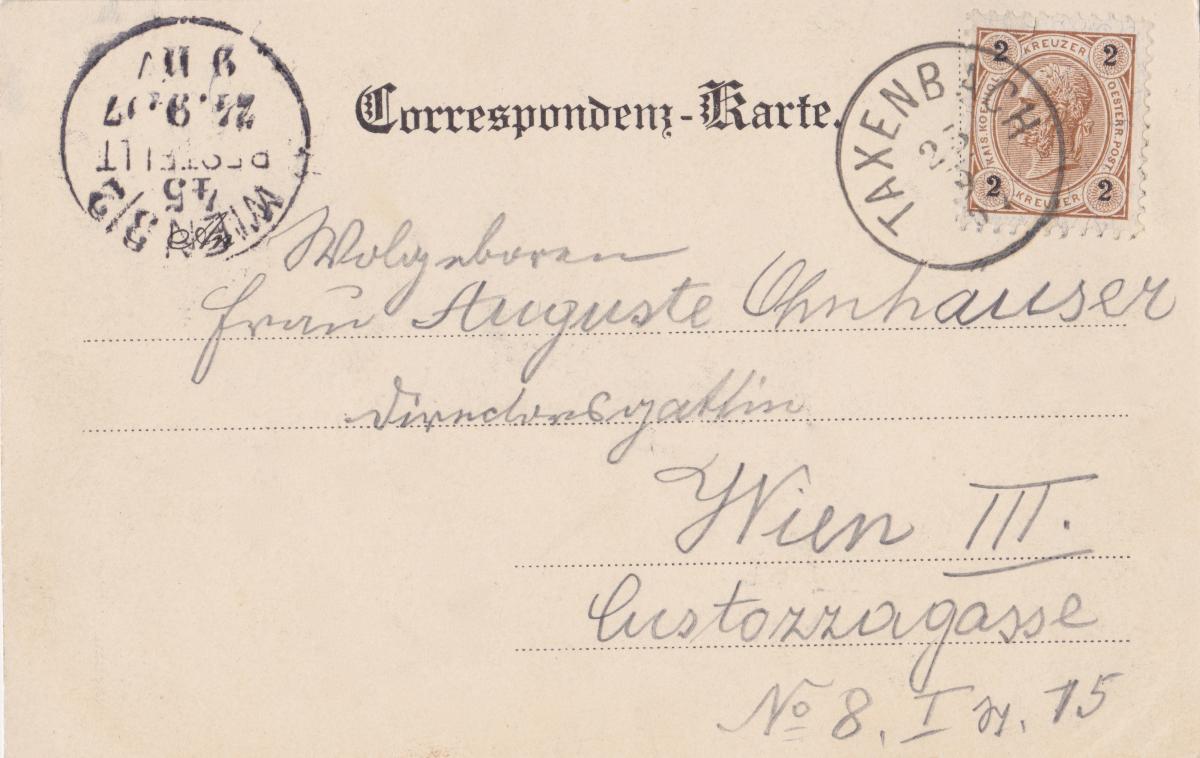 Correspondenz-Karte.
TAXENBACH
2 KREUZER 2
KAIS. KOEN.
OESTERR. POST.
2 KREUZER 2
WIEN 3/2
45
BESTELLT
24. 9. 97
9 V
Wolgeboren
Frau Auguste Ohnhäuser
Directorsgattin
Wien III.
Custozzagasse
No 8, I 15